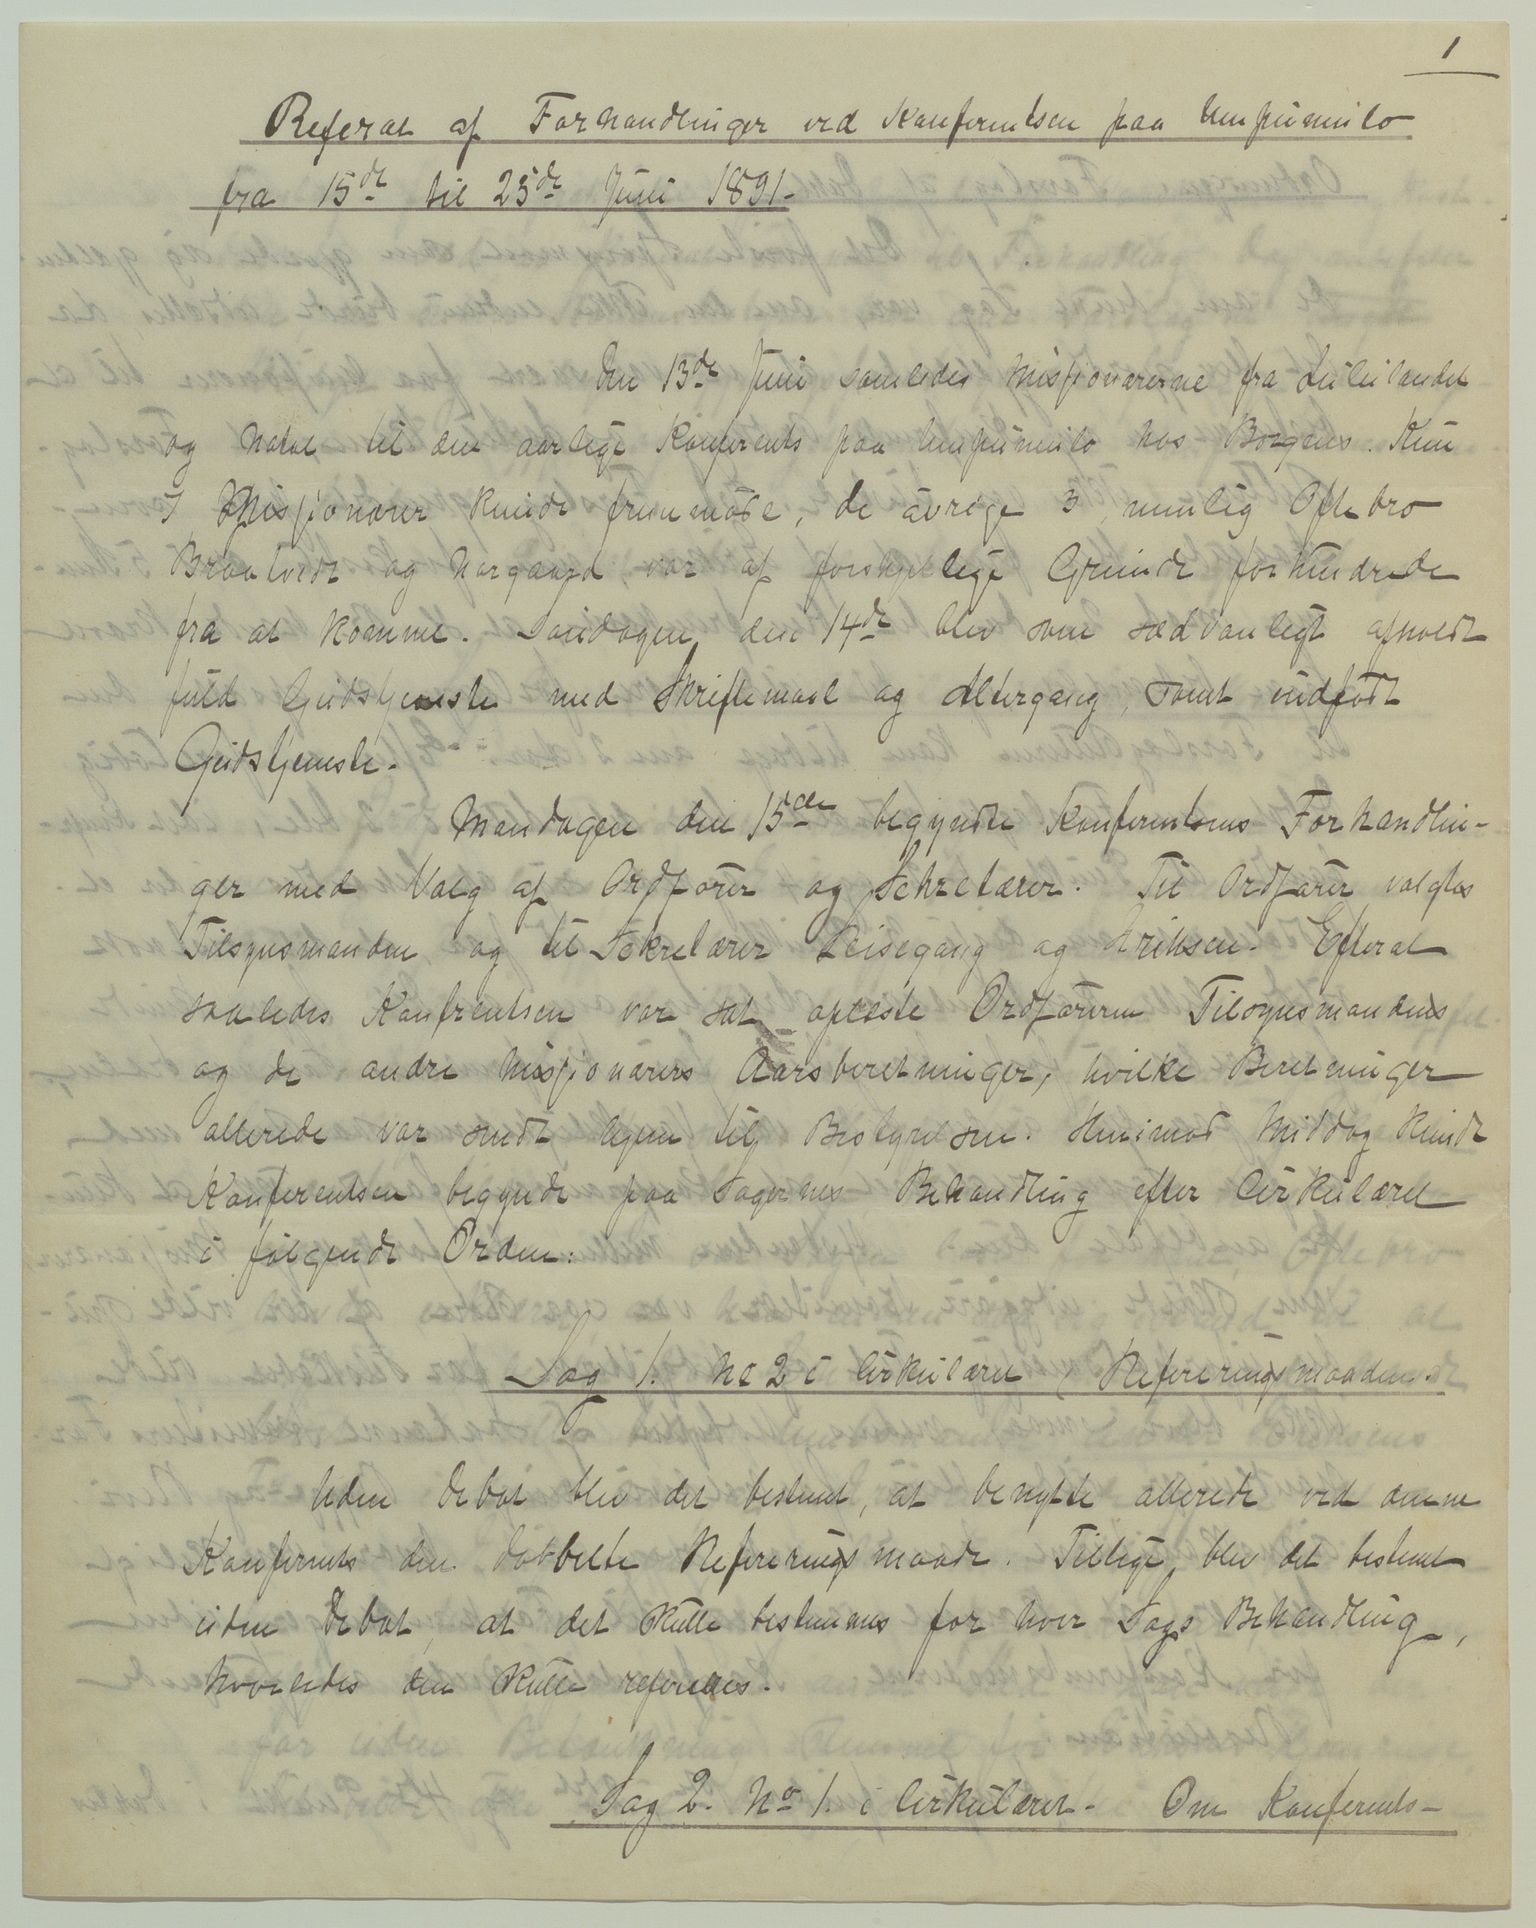 1
Referat af Forhandlinger ved Konferentsen paa Umpumulo
fra 15de til 25de Juni 1891.
Den 13de Juni samledes Missionærerne fra Zululandet
og Natal til den aarlige Konferents paa Umpumulo hos Borgens. Kun
7 Missionærer kunde fremmøde, de øvrige 3, nemlig Oftebro
Braatvedt og Norgaard, var af forskjellige Grunde forhindrede
fra at komme. Søndagen den 14de blev som sædvanligt afholdt
fuld Gudstjeneste med Skriftemaal og Altergang, samt indfødt
Gudstjeneste.
Mandagen den 15de begyndte Konferentsens Forhandlin-
ger med Valg af Ordfører og Sekretærer. Til Ordfører valgtes
Tilsynsmanden og til Sekretærer Leisegang og Eriksen. Efterat
saaledes Konfrentsen var sat oplæste Ordføreren Tilsynsmandens
og de andre Missionærers Aarsberetninger, hvilke Beretninger
allerede var sendt hjem til Bestyrelsen. Henimod Middag kunde
Konferentsen begynde paa Sagernes Behandling efter Cirkulæret
i følgende Orden:
Sag 1. No 2 i Cirkulæret (Refereringsmaaden.
Uden Debat blev det bestemt, at benytte allerede ved denne
Konferents den dobbelte Refereringsmaade. Tillige blev det bestemt
uden Debat, at det skulle bestemmes for hver Sags Behandling,
hvorledes den skulle refereres.
Sag 2. No 1. i Cirkulæret. Om Konferents-